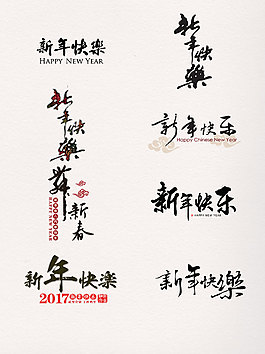 新年快樂
HAPPY NEW YEAR
新年快樂
新年快樂
舞動新春
新年快乐
Happy Chinese New Year
新年快乐
A HAPPY NEW YEAR
新年快楽
2017
新年快樂